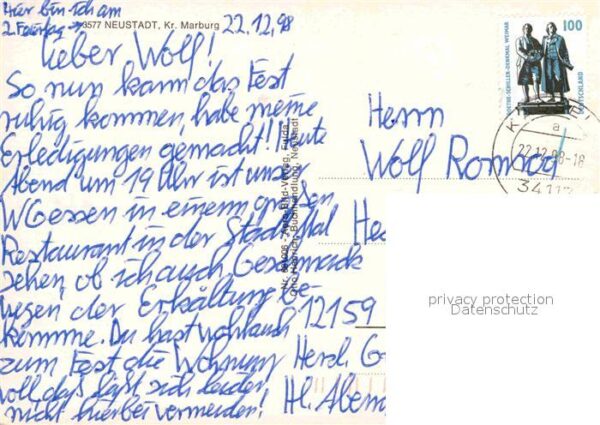 Hier bin ich am
2. Feiertag → 3577 NEUSTADT, Kr. Marburg 22.12.98
Lieber Wolf!
So nun kann das Fest
ruhig kommen, habe meine
Erledigungen gemacht! Heute
Abend um 19 Uhr ist unser
WGessen in einem großen
Restaurant in der Stadt, mal
sehen, ob ich auch Geschmack
wegen der Erkältung be-
komme. Du hast wohl auch
zum Fest die Wohnung
voll, das läßt sich leider
nicht hierbei vermeiden!
Herzl. G
Hl. Abend
Herrn
Wolf
He
12159
100
GOETHE-SCHILLER-DENKMAL WEIMAR
DEUTSCHLAND
22.12.98-18
a
3411
Bild-Verlag, Fulda
Buchhandlung, Neustadt
privacy protection
Datenschutz